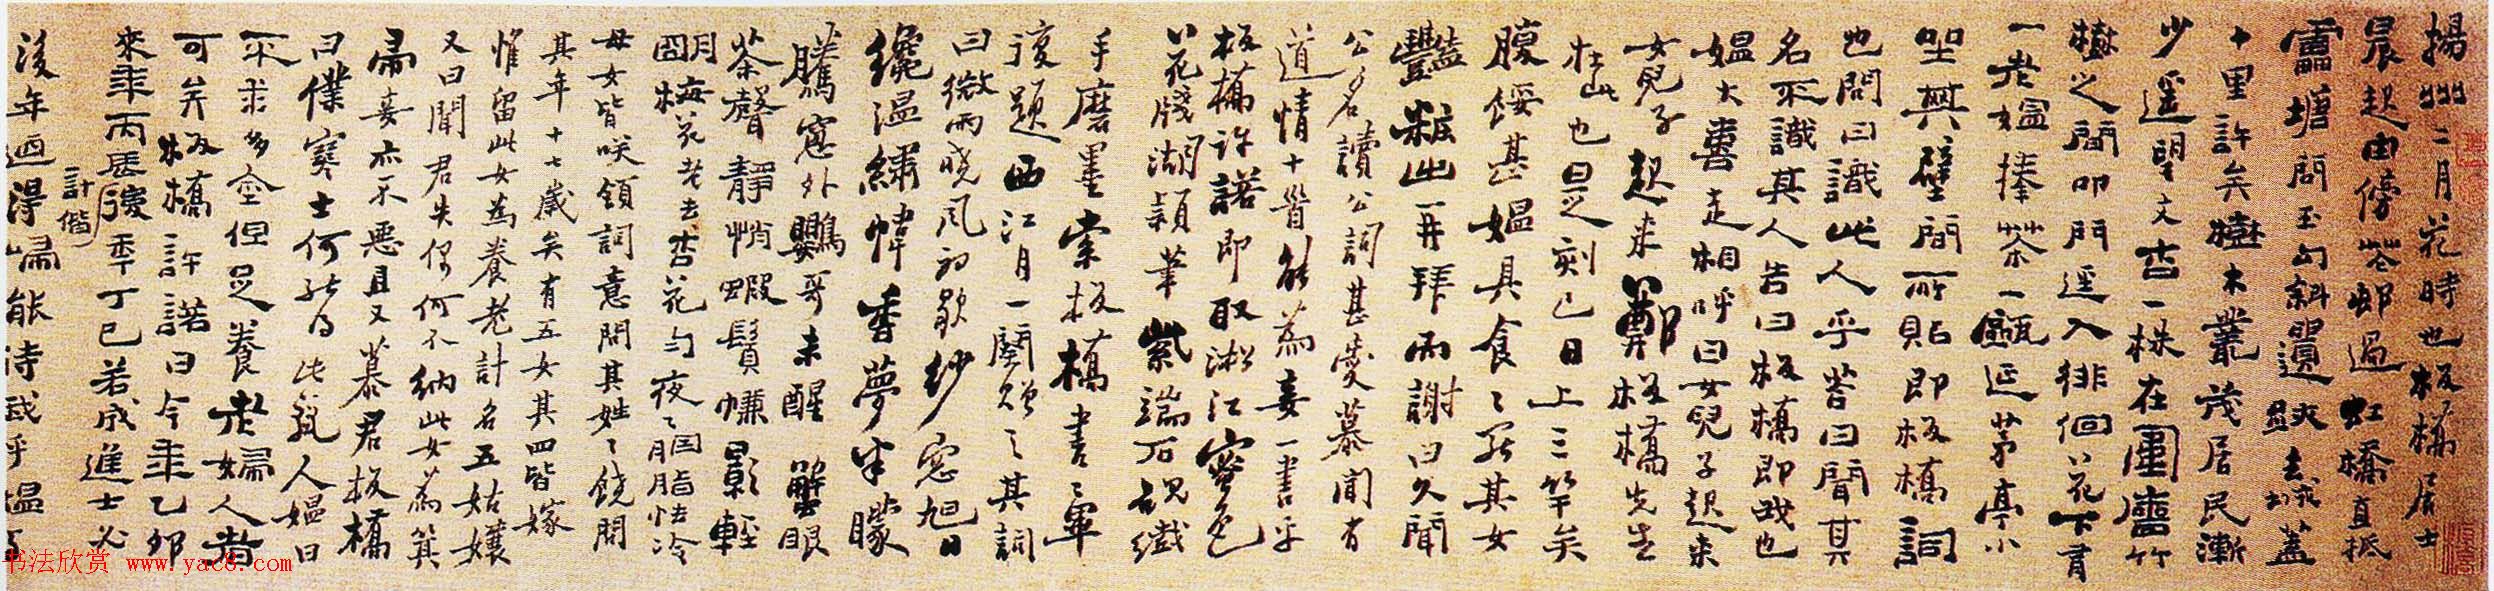 揚州二月花時也板橋居士
晨起由傍花邨過虹橋直抵
雷塘問玉勾斜遺跡去城蓋
十里許矣樹木叢茂居民漸
少遥望文杏一株在圍牆竹
樹之間叩門逕入徘徊花下有
一老媪捧茶一甌延茅亭小
坐其壁間所貼即板橋詞
也問曰識此人乎荅曰聞其
名不識其人告曰板橋即我也
媪大喜走相呼曰女兒子起來
女兒子起來鄭板橋先生
在此也是刻已日上三竿矣
腹餒甚媪具食食罷其女
豔粧出再拜而謝曰久聞
公名讀公詞甚愛慕聞有
道情十首能為妾一書乎
板橋許諾即取淞江蜜色
花牋湖潁筆紫端石硯纖
手磨墨索板橋書書畢
復題西江月一闋贈之其詞
曰微雨曉風初歇紗窓旭日
纔温繡幃香夢半朦
騰窓外鸚哥未醒 蟹眼
茶聲靜悄蝦鬚簾影輕
朙梅花老去杏花勻夜夜胭脂怯冷
母女皆笑領詞意問其姓姓饒問
其年十七歲矣有五女其四皆嫁
惟留此女為養老計名五姑孃
又曰聞君失偶何不納此女為箕
帚妾亦不惡且又慕君板橋
曰僕寒士何能得此麗人媪曰
不求多金但足養老婦人者
可矣板橋許諾曰今年乙卯
來年丙辰計偕後年丁巳若成進士必
後年廼得歸能待我乎媪
书法欣赏 www.yac8.com